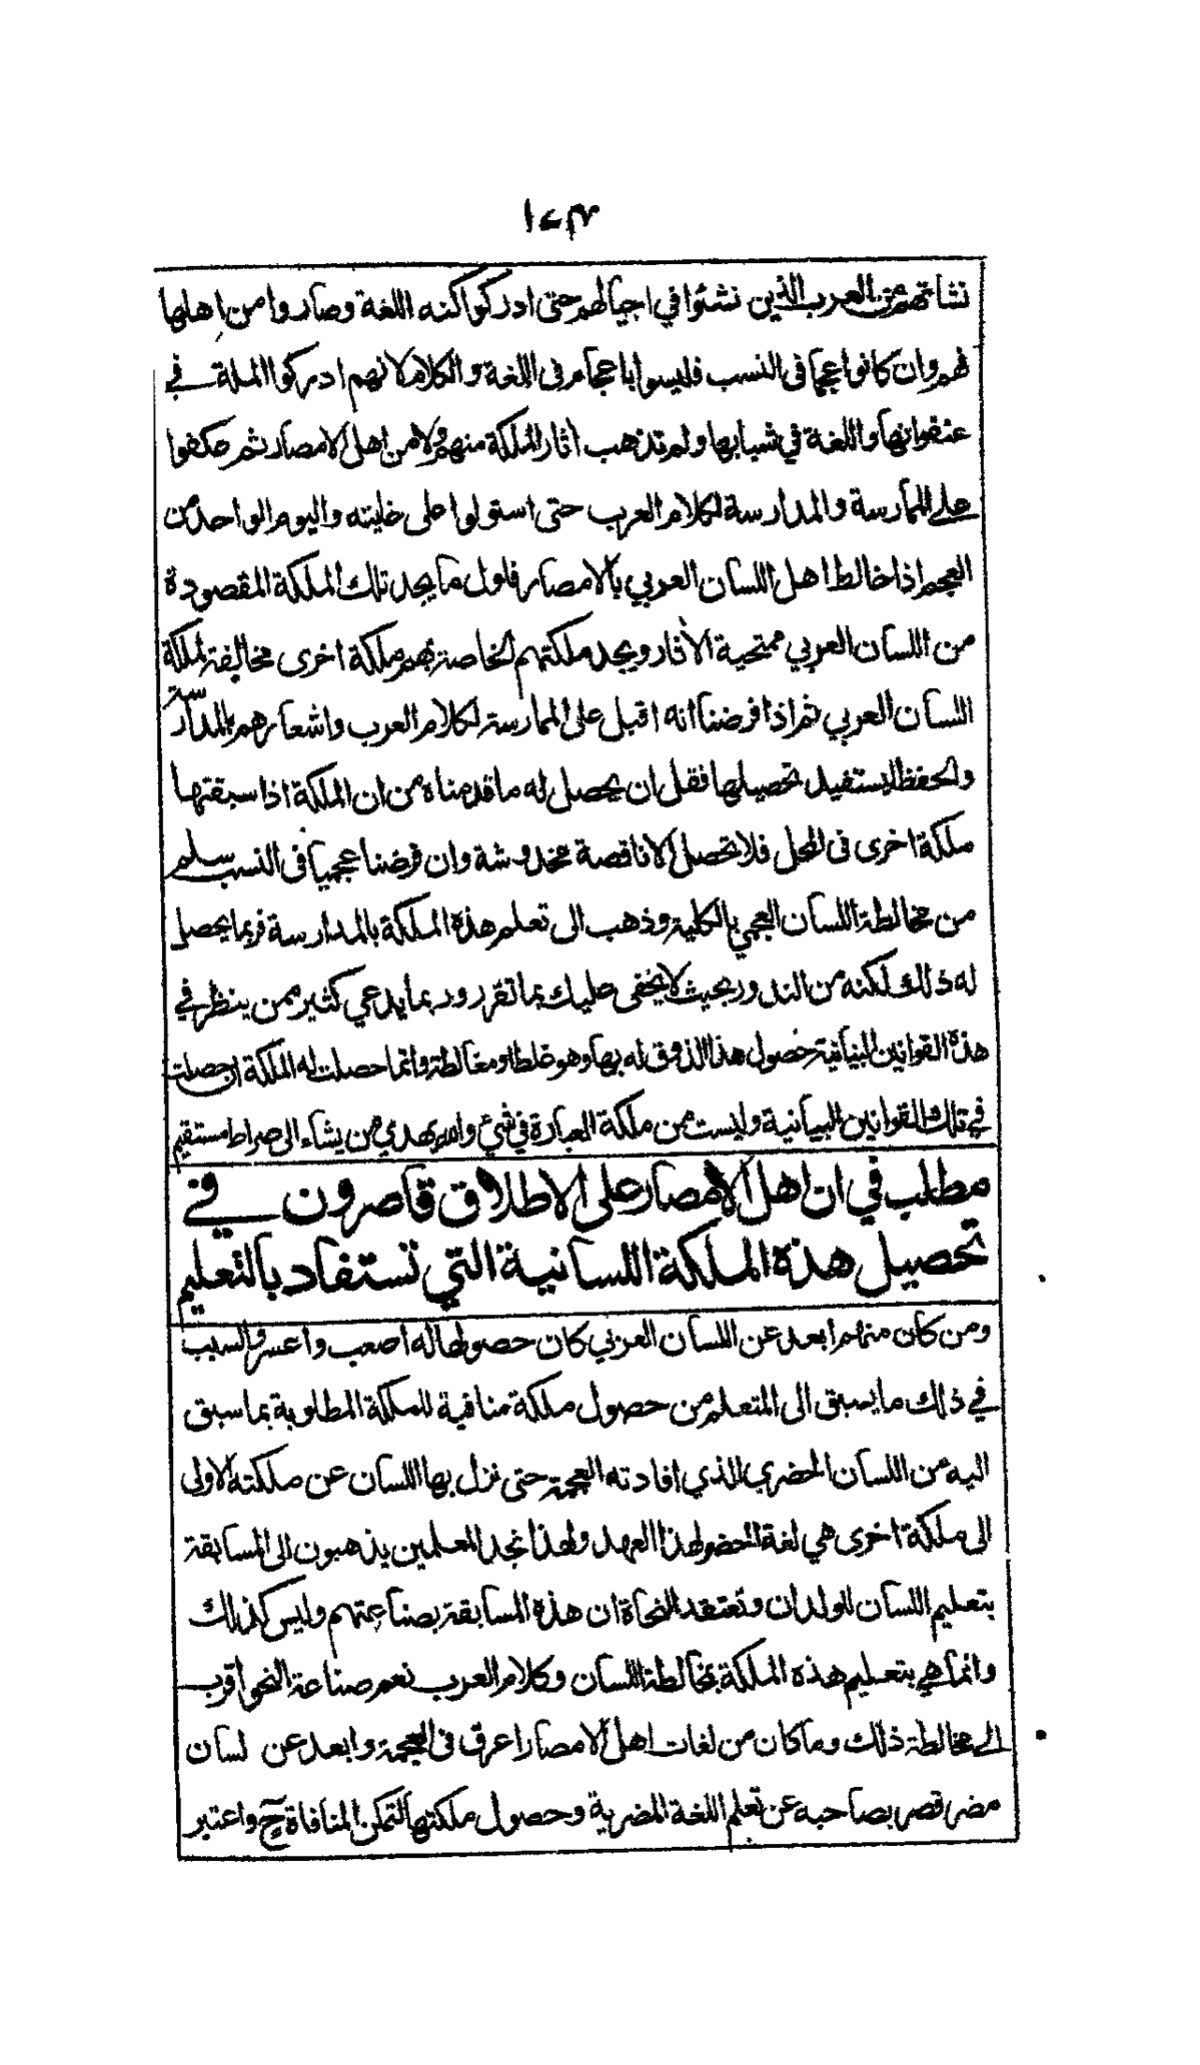 نشاتهم من العرب الذين نشئوا في اجيالهم حتى ادركوا كنه اللغة وصاروا من اهلها
فهم وان كانوا عجما في النسب فليسوا باعجام في اللغة والكلام لانهم ادركوا الملة في
عنفوانها واللغة في شبابها ولم تذهب اثار الملكة منهم ولا من اهل الامصار ثم عكفوا
على الممارسة والمدارسة لكلام العرب حتى استولوا على غايته واليوم الواحد من
العجم اذا خالط اهل اللسان العربي بالامصار فاول ما يجد تلك الملكة المقصودة
من اللسان العربي ممتحية الاثار ويجد ملكتهم الخاصة بهم ملكة اخرى مخالفة لملكة
اللسان العربي ثم اذا فرضنا انه اقبل على الممارسة لكلام العرب واشعارهم بالمدارسة
والحفظ ليستفيد تحصيلها فقل ان يحصل له ما قدمناه من ان الملكة اذا سبقتها
ملكة اخرى في المحل فلا تحصل الا ناقصة مخدوشة وان فرضنا عجميا في النسب سلم
من مخالطة اللسان العجمي بالكلية وذهب الى تعلم هذه الملكة بالمدارسة فربما يحصل
له ذلك لكنه من الندور بحيث لا يخفى عليك بما تقرر وربما يدعي كثير ممن ينظر في
هذه القوانين البيانية حصول هذا الذوق له بها وهو غلط او مغالطة وانما حصلت له الملكة ان حصلت
في تلك القوانين البيانية وليست من ملكة العبارة في شئ والله يهدي من يشاء الى صراط مستقيم
مطلب في ان اهل الامصار على الاطلاق قاصرون في
تحصيل هذه الملكة اللسانية التي تستفاد بالتعليم
ومن كان منهم ابعد عن اللسان العربي كان حصولها له اصعب واعسر والسبب
في ذلك ما يسبق الى المتعلم من حصول ملكة منافية للملكة المطلوبة بما سبق
اليه من اللسان الحضري الذي افادته العجمة حتى نزل بها اللسان عن ملكته الاولى
الى ملكة اخرى هي لغة الحضر لهذا العهد ولهذا نجد المعلمين يذهبون الى المسابقة
بتعليم اللسان للولدان وتعتقد النحاة ان هذه المسابقة بصناعتهم وليس كذلك
وانما هي بتعليم هذه الملكة بمخالطة اللسان وكلام العرب نعم صناعة النحو اقرب
الى مخالطة ذلك وما كان من لغات اهل الامصار اعرق في العجمة وابعد عن لسان
مضر قصر بصاحبه عن تعلم اللغة المضرية وحصول ملكتها لتمكن المنافاة ح واعتبر